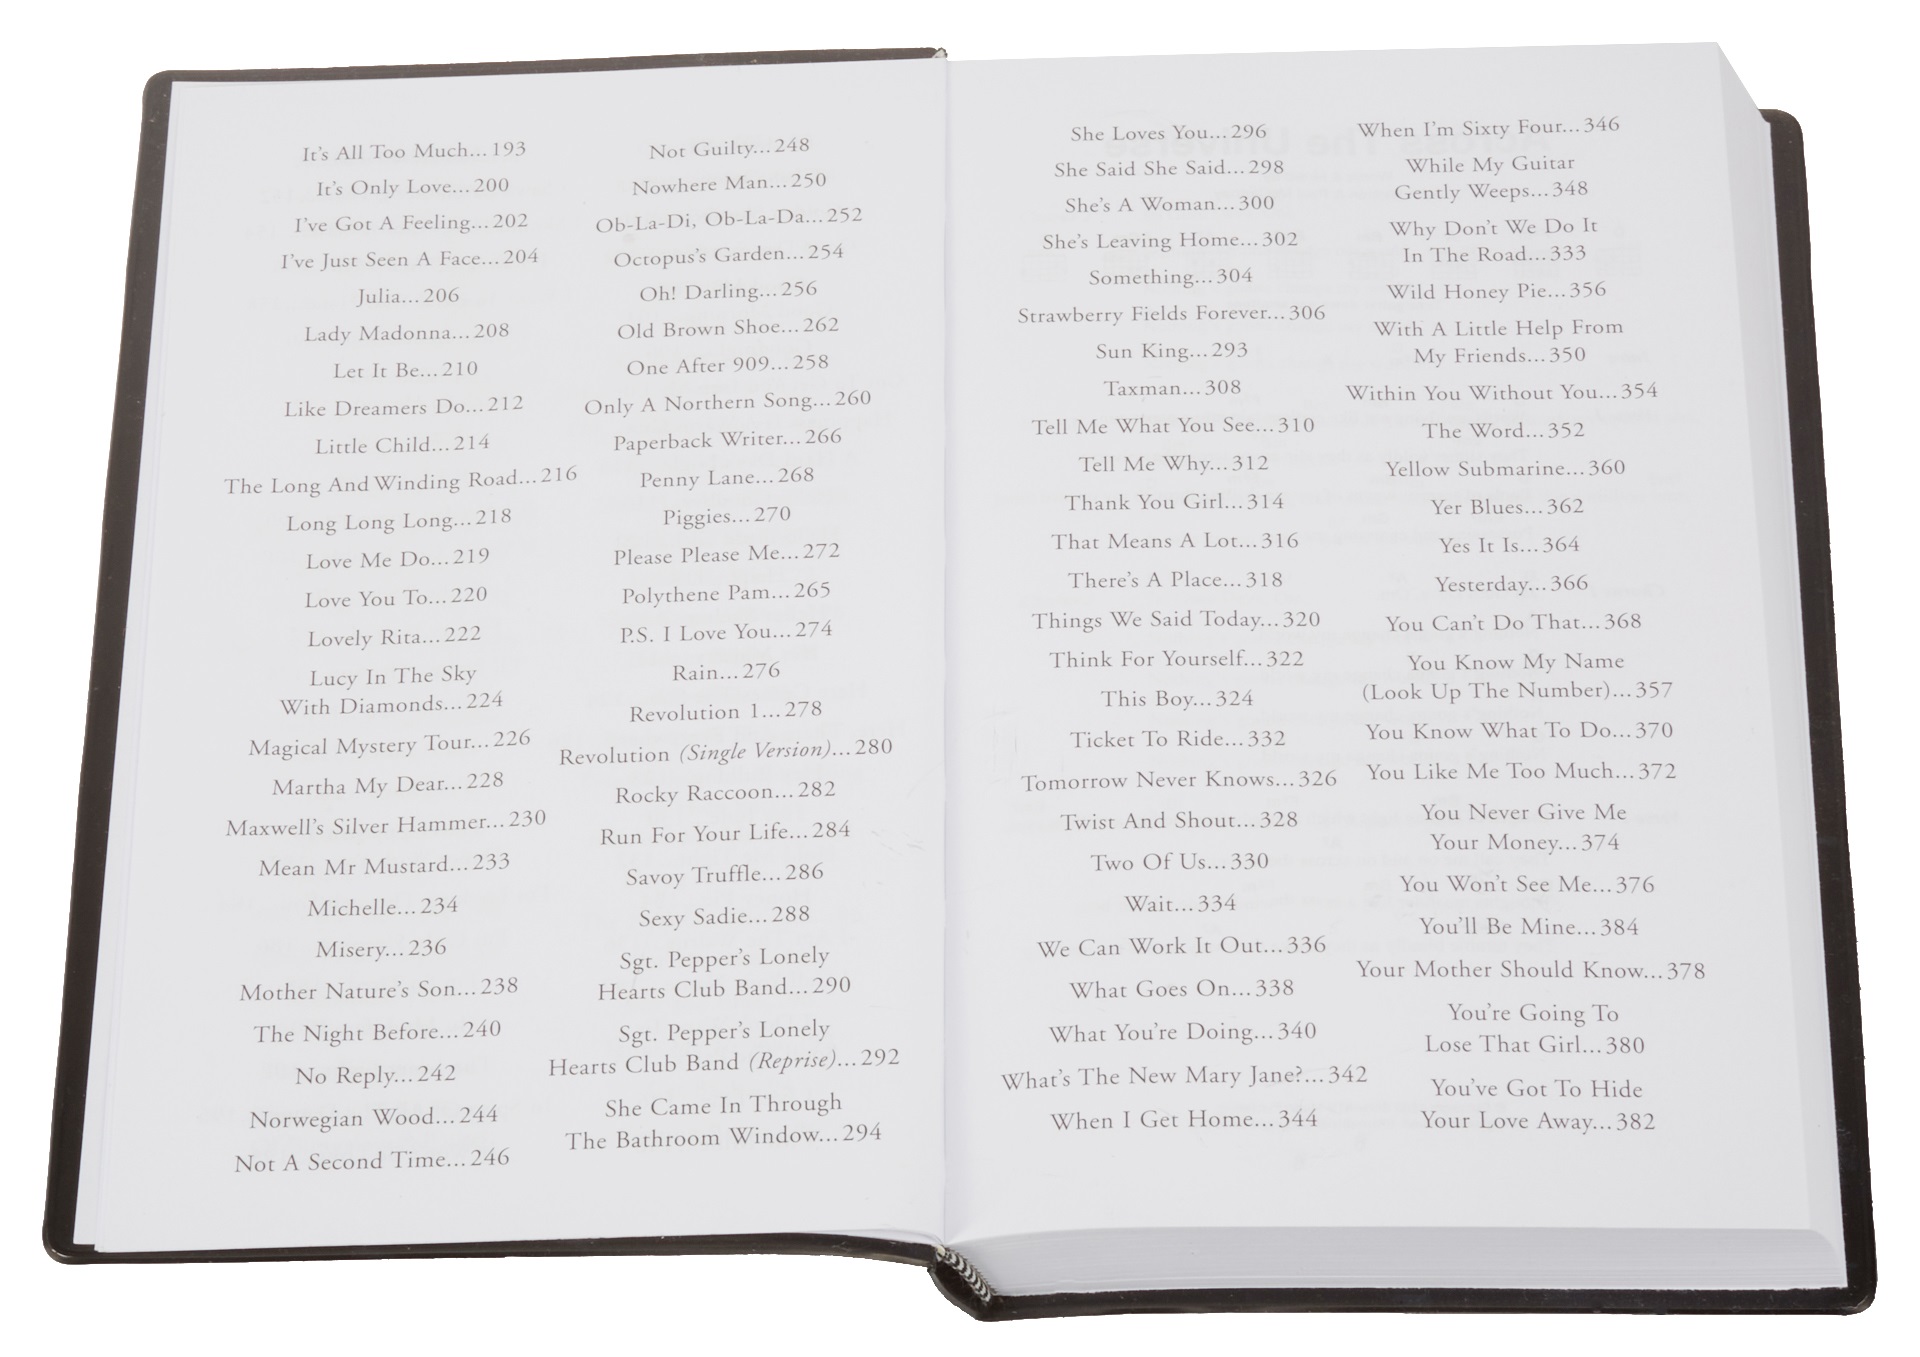 It's All Too Much...193
It's Only Love...200
I've Got A Feeling...202
I've Just Seen A Face...204
Julia...206
Lady Madonna...208
Let It Be...210
Like Dreamers Do...212
Little Child...214
The Long And Winding Road...216
Long Long Long...218
Love Me Do...219
Love You To...220
Lovely Rita...222
Lucy In The Sky
With Diamonds...224
Magical Mystery Tour...226
Martha My Dear...228
Maxwell's Silver Hammer...230
Mean Mr Mustard...233
Michelle...234
Misery...236
Mother Nature's Son...238
The Night Before...240
No Reply...242
Norwegian Wood...244
Not A Second Time...246
Not Guilty...248
Nowhere Man...250
Ob-La-Di, Ob-La-Da...252
Octopus's Garden...254
Oh! Darling...256
Old Brown Shoe...262
One After 909...258
Only A Northern Song...260
Paperback Writer...266
Penny Lane...268
Piggies...270
Please Please Me...272
Polythene Pam...265
P.S. I Love You...274
Rain...276
Revolution 1...278
Revolution (Single Version)...280
Rocky Raccoon...282
Run For Your Life...284
Savoy Truffle...286
Sexy Sadie...288
Sgt. Pepper's Lonely
Hearts Club Band...290
Sgt. Pepper's Lonely
Hearts Club Band (Reprise)...292
She Came In Through
The Bathroom Window...294
She Loves You...296
She Said She Said...298
She's A Woman...300
She's Leaving Home...302
Something...304
Strawberry Fields Forever...306
Sun King...293
Taxman...308
Tell Me What You See...310
Tell Me Why...312
Thank You Girl...314
That Means A Lot...316
There's A Place...318
Things We Said Today...320
Think For Yourself...322
This Boy...324
Ticket To Ride...332
Tomorrow Never Knows...326
Twist And Shout...328
Two Of Us...330
Wait...334
We Can Work It Out...336
What Goes On...338
What You're Doing...340
What's The New Mary Jane?...342
When I Get Home...344
When I'm Sixty Four...346
While My Guitar
Gently Weeps...348
Why Don't We Do It
In The Road...333
Wild Honey Pie...356
With A Little Help From
My Friends...350
Within You Without You...354
The Word...352
Yellow Submarine...360
Yer Blues...362
Yes It Is...364
Yesterday...366
You Can't Do That...368
You Know My Name
(Look Up The Number)...357
You Know What To Do...370
You Like Me Too Much...372
You Never Give Me
Your Money...374
You Won't See Me...376
You'll Be Mine...384
Your Mother Should Know...378
You're Going To
Lose That Girl...380
You've Got To Hide
Your Love Away...382